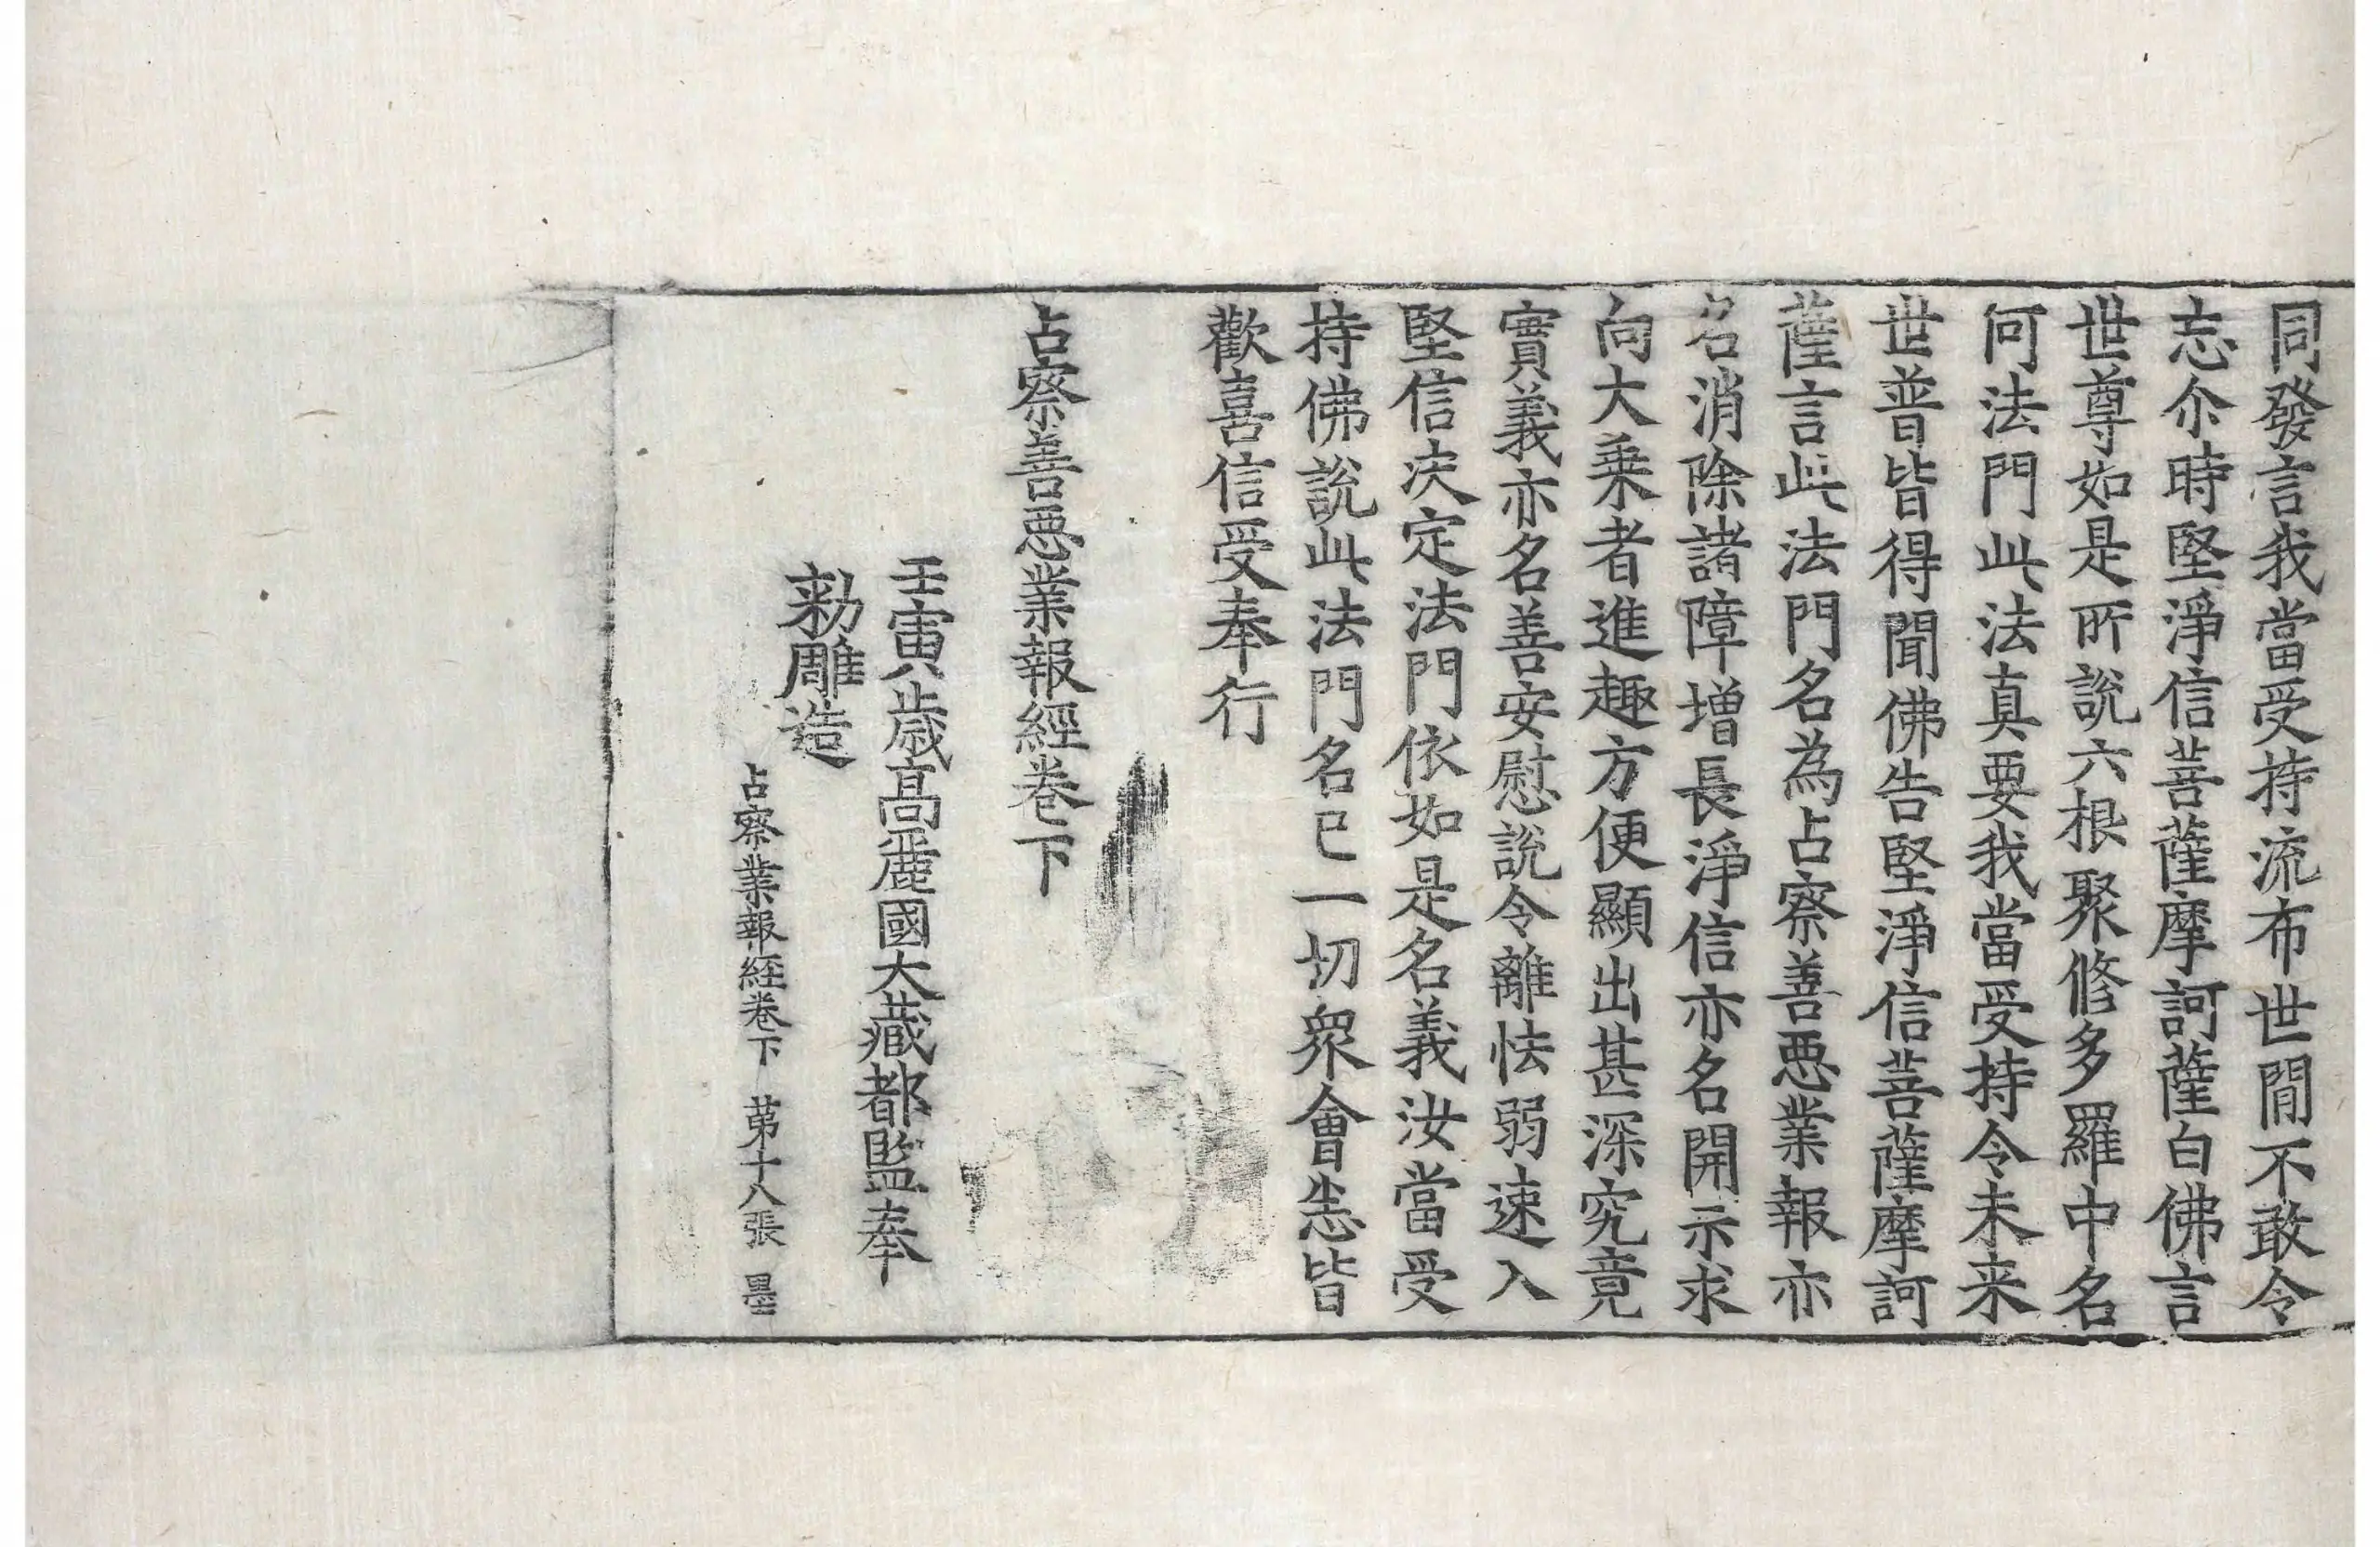 同發言我當受持流布世間不敢令
忘尒時堅淨信菩薩摩訶薩白佛言
世尊如是所說六根聚修多羅中名
何法門此法真要我當受持令未来
世普皆得聞佛告堅淨信菩薩摩訶
薩言此法門名為占察善惡業報亦
名消除諸障增長淨信亦名開示求
向大乗者進趣方便顯出甚深究竟
實義亦名善安慰說令離怯弱速入
堅信決定法門依如是名義汝當受
持佛說此法門名已一切衆會悉皆
歡喜信受奉行
占察善惡業報經卷下
壬寅歳高麗國大藏都監奉
勑雕造
占察業報經卷下 苐十八張 墨